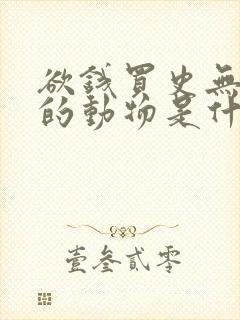 欲錢買史無
的動物是什
壹叁貳零